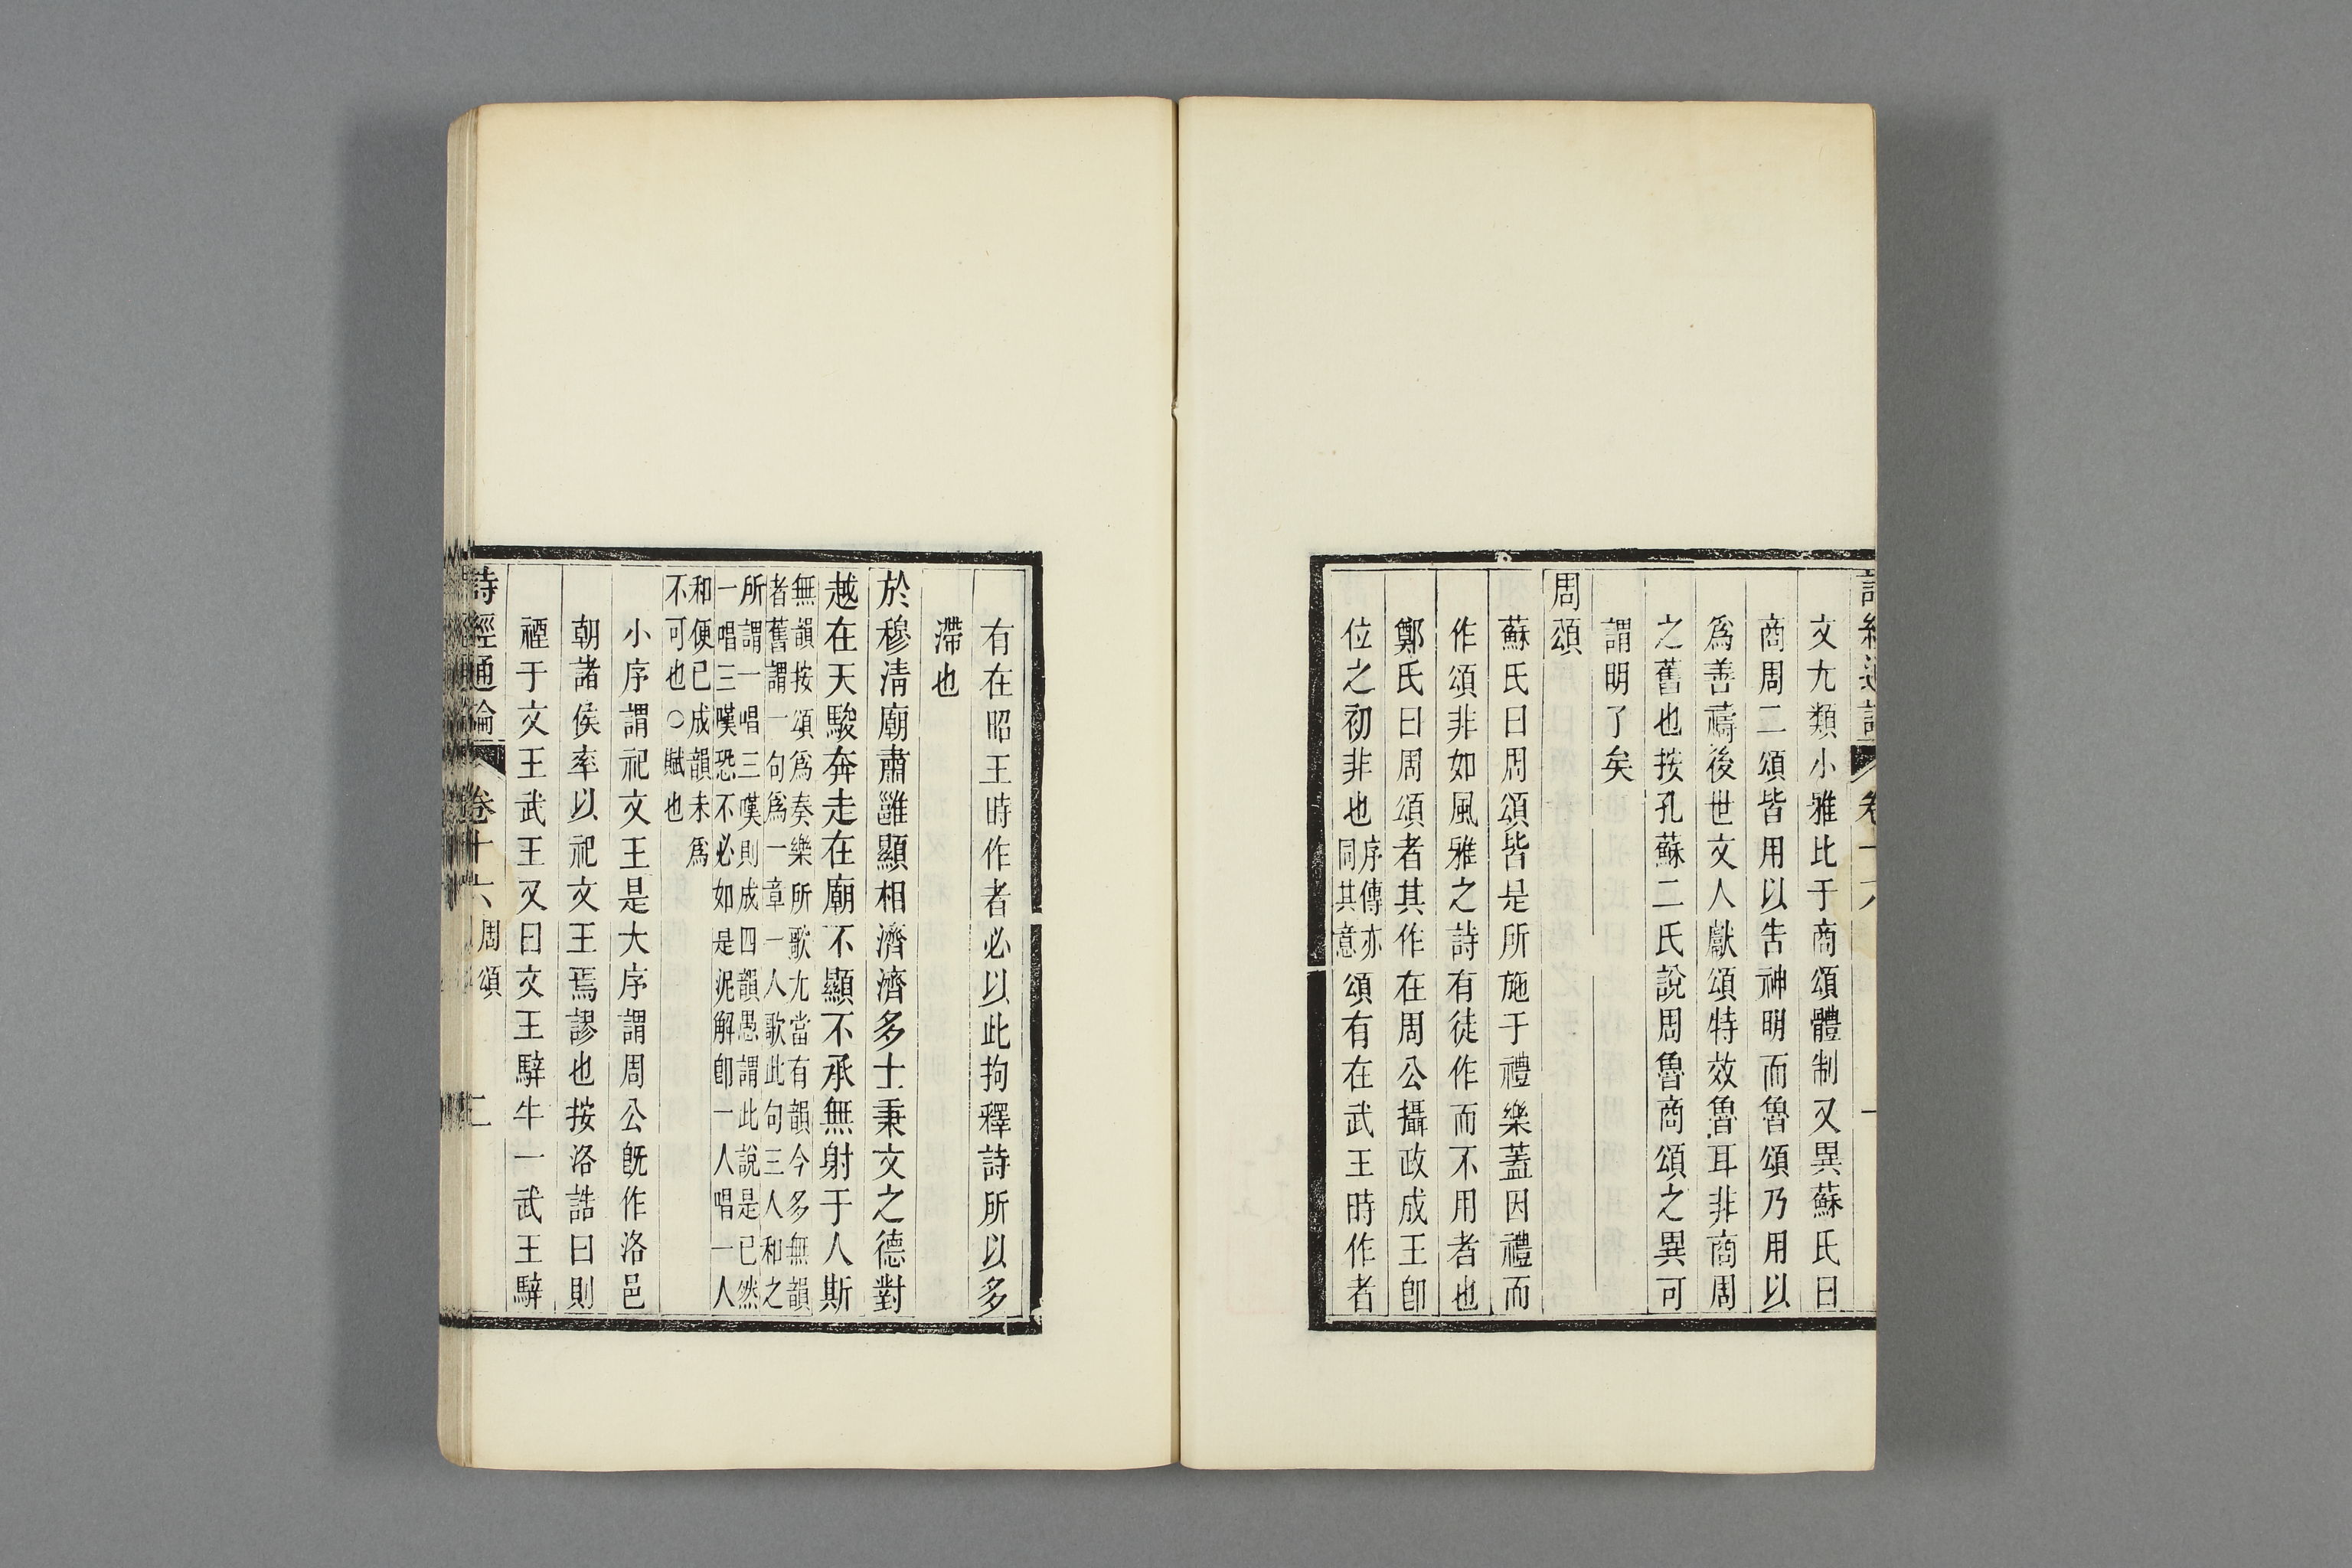 文尤類小雅比于商頌體制又異蘇氏曰
商周二頌皆用以吿神明而魯頌乃用以
爲善禱後世文人獻頌特效魯耳非商周
之舊也按孔蘇二氏說周魯商頌之異可
謂明了矣
周頌
蘇氏曰周頌皆是所施于禮樂蓋因禮而
作頌非如風雅之詩有徒作而不用者也
鄭氏曰周頌者其作在周公攝政成王卽
位之初非也序傳亦同其意頌有在武王時作者
有在昭王時作者必以此拘釋詩所以多
滯也
於穆淸廟肅雝顯相濟濟多士秉文之德對
越在天駿奔走在廟不顯不承無射于人斯
無韻按頌爲奏樂所歌尤當有韻今多無韻
者舊謂一句爲一章一人歌此句三人和之
所謂一唱三嘆則成四韻愚謂此說是已然
一唱三嘆恐不必如是泥解卽一人唱一人
和便已成韻未爲
不可也○賦也
小序謂祀文王是大序謂周公旣作洛邑
朝諸侯率以祀文王焉謬也按洛誥曰則
禋于文王武王又曰文王騂牛一武王騂
詩經通論 卷十六 周頌 二